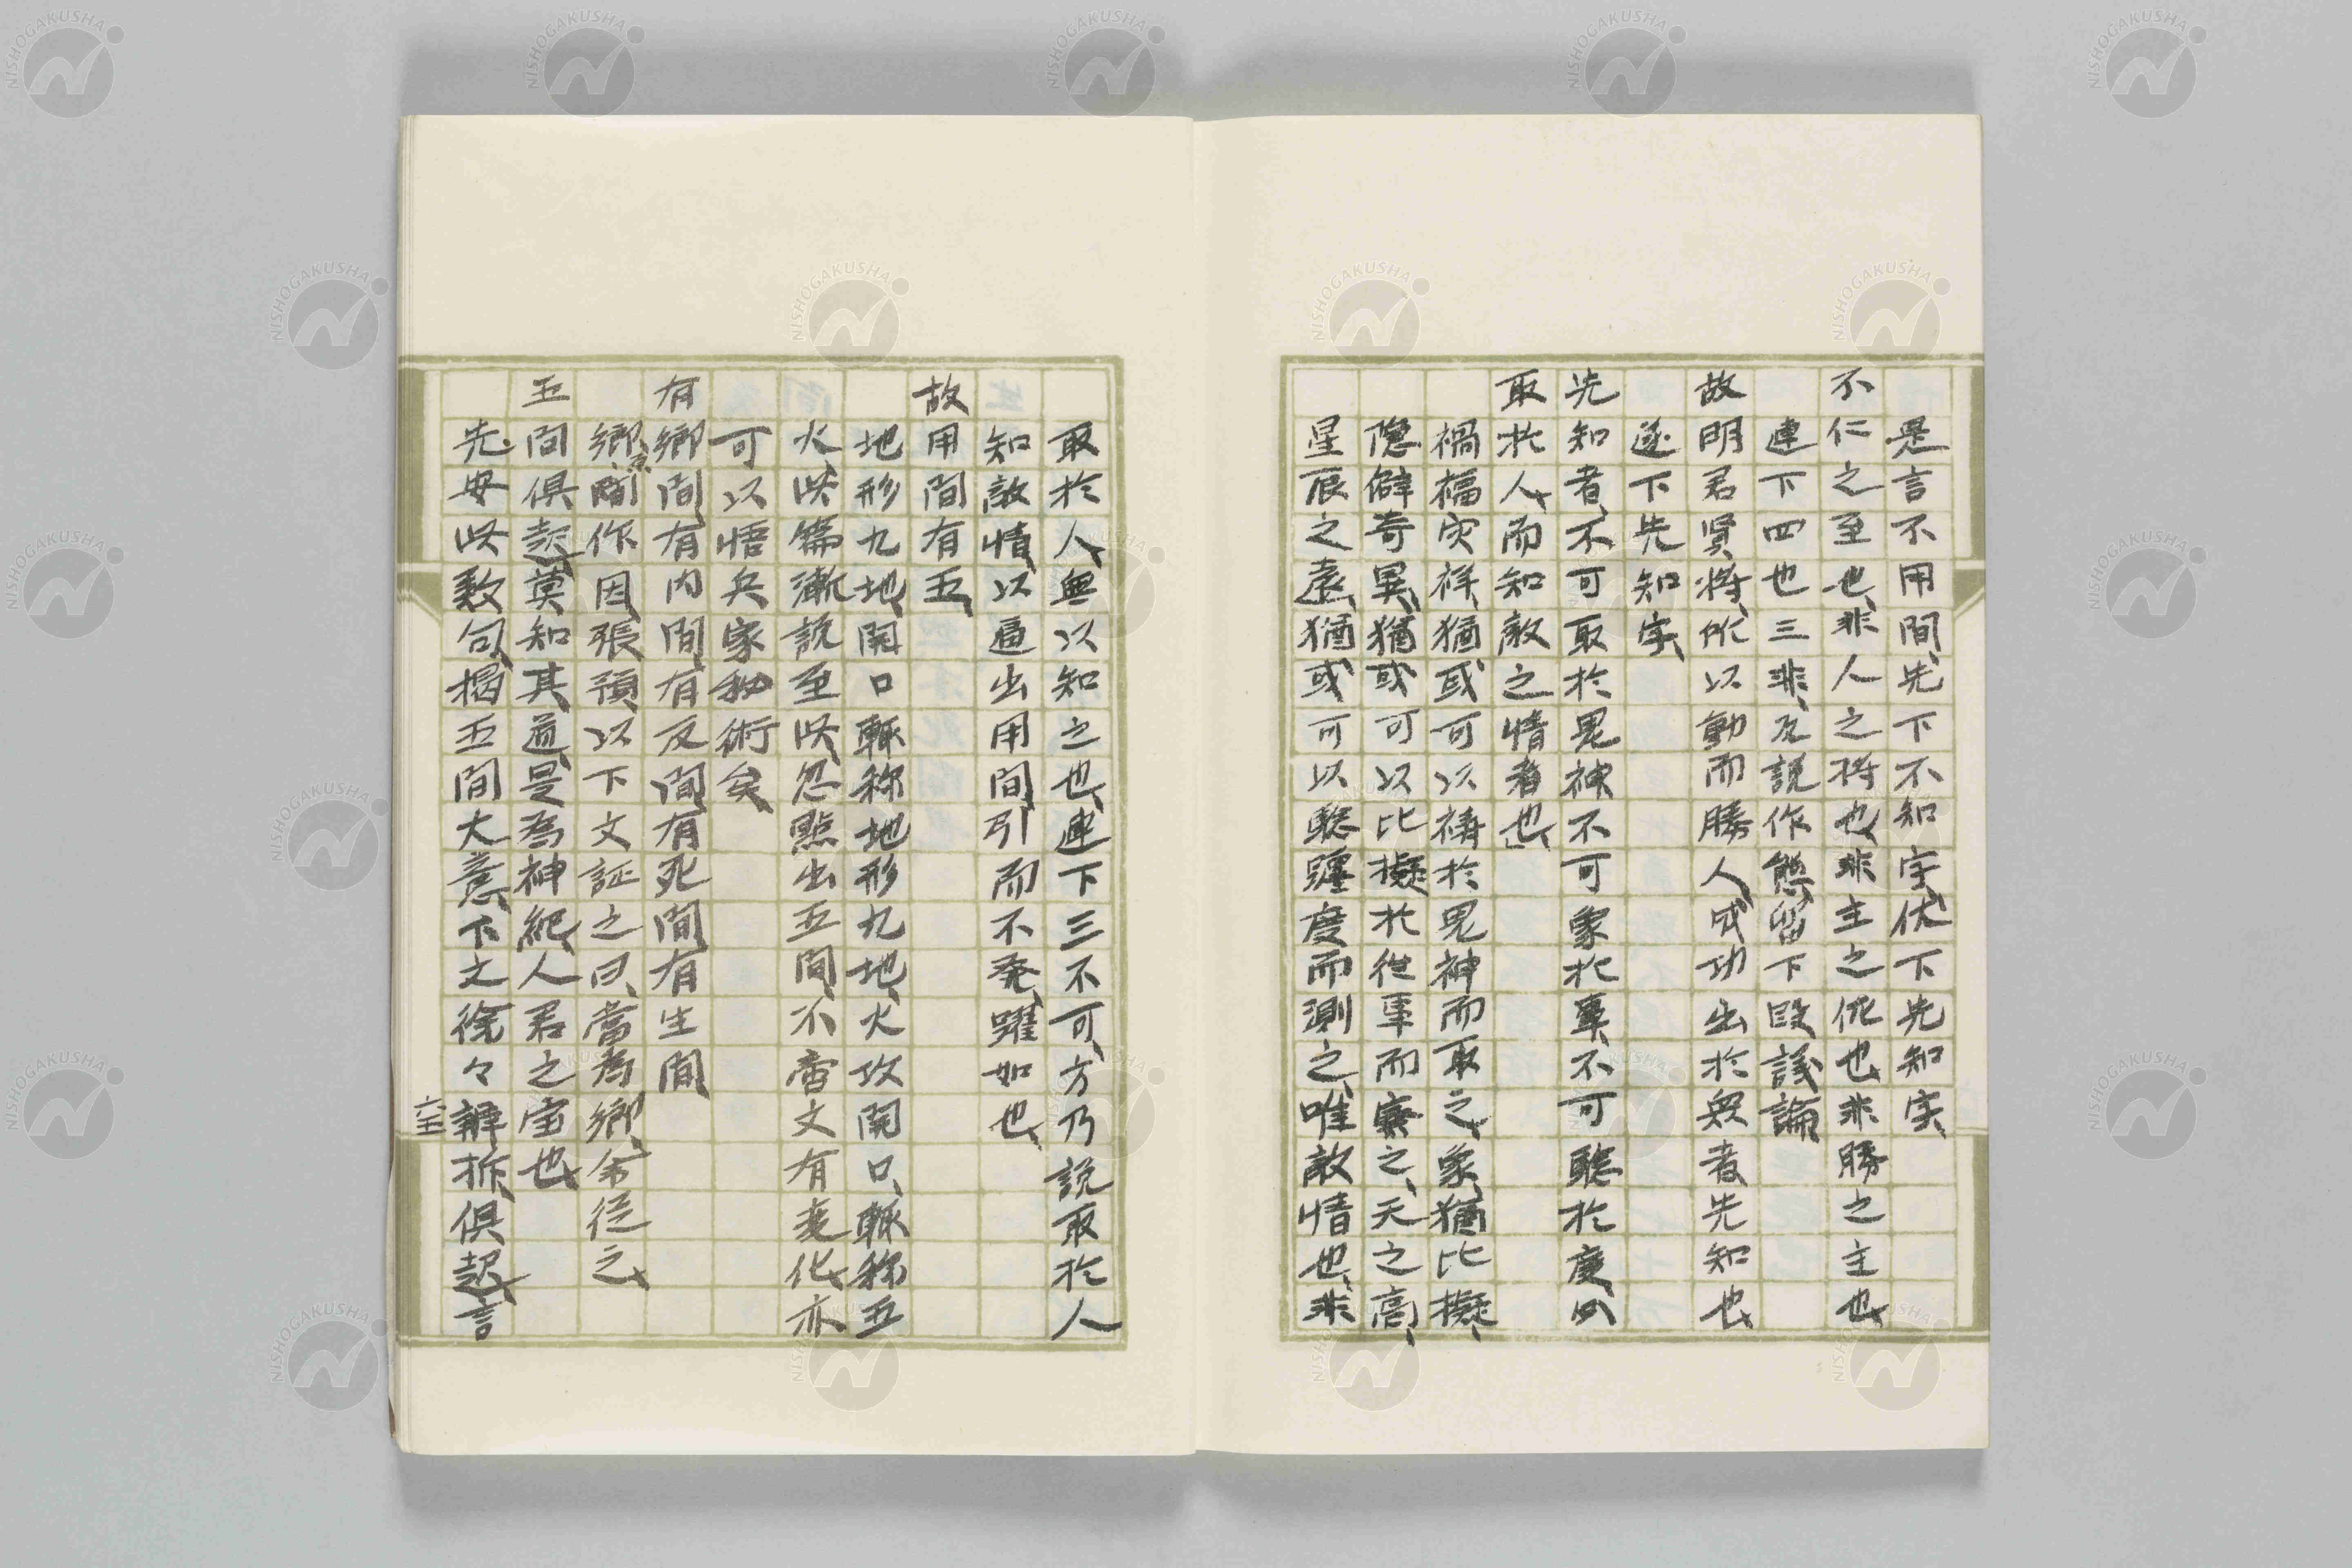 是言不用間、先下不知字、伏下先知字、
不仁之至也、非人之将也、非主之佐也、非勝之主也、
連下四也三非、反説作態、留下段議論
故明君賢将、所以動而勝人、成功出於衆者先知也、
逐下先知字、
先知者、不可取於鬼神不可象於事、不可験於度、必
取於人、而知敵之情者也、
禍福灾祥、猶或可以禱於鬼神而取之、象、猶比擬、
隠僻奇異、猶或可以比擬於往事而察之、天之高、
星辰之遠、猶或可以験躔度而測之、唯敵情也、非
取於人、無以知之也、連下三不可、方乃説取於人
知敵情以逼出用間引而不発、躍如也、
故用間有五、
地形九地、開口輙称地形九地、火攻開口、輙称五
火、此篇漸説至此、忽點出五間、不啻文有変化、亦
可以悟兵家秘術矣、
有鄉間、有内間、有反間、有死間、有生間、
鄉間、原作因、張預以下文証之曰、當為鄉、今従之、
五間俱起、莫知其道、是為神紀、人君之宝也、
先安此数句、揭五間大意、下文徐々辨拆、俱起、言
六十五
NISHOGAKUSHA